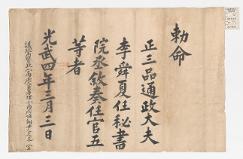 勅命
正三品通政大夫
李舜夏任秘書
院丞敘奏任官五
等者
光武四年三月三日